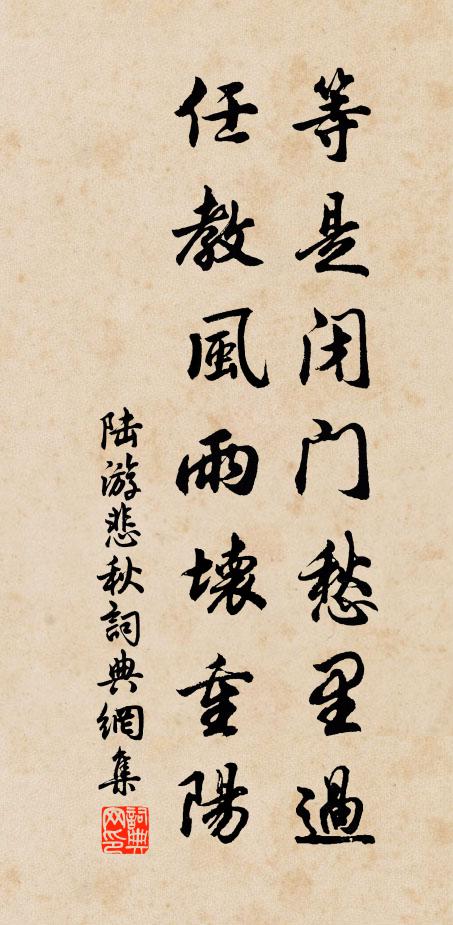 等是闭门愁里過
任教風雨壞重陽
陆游悲秋詞典網集
詞典网印